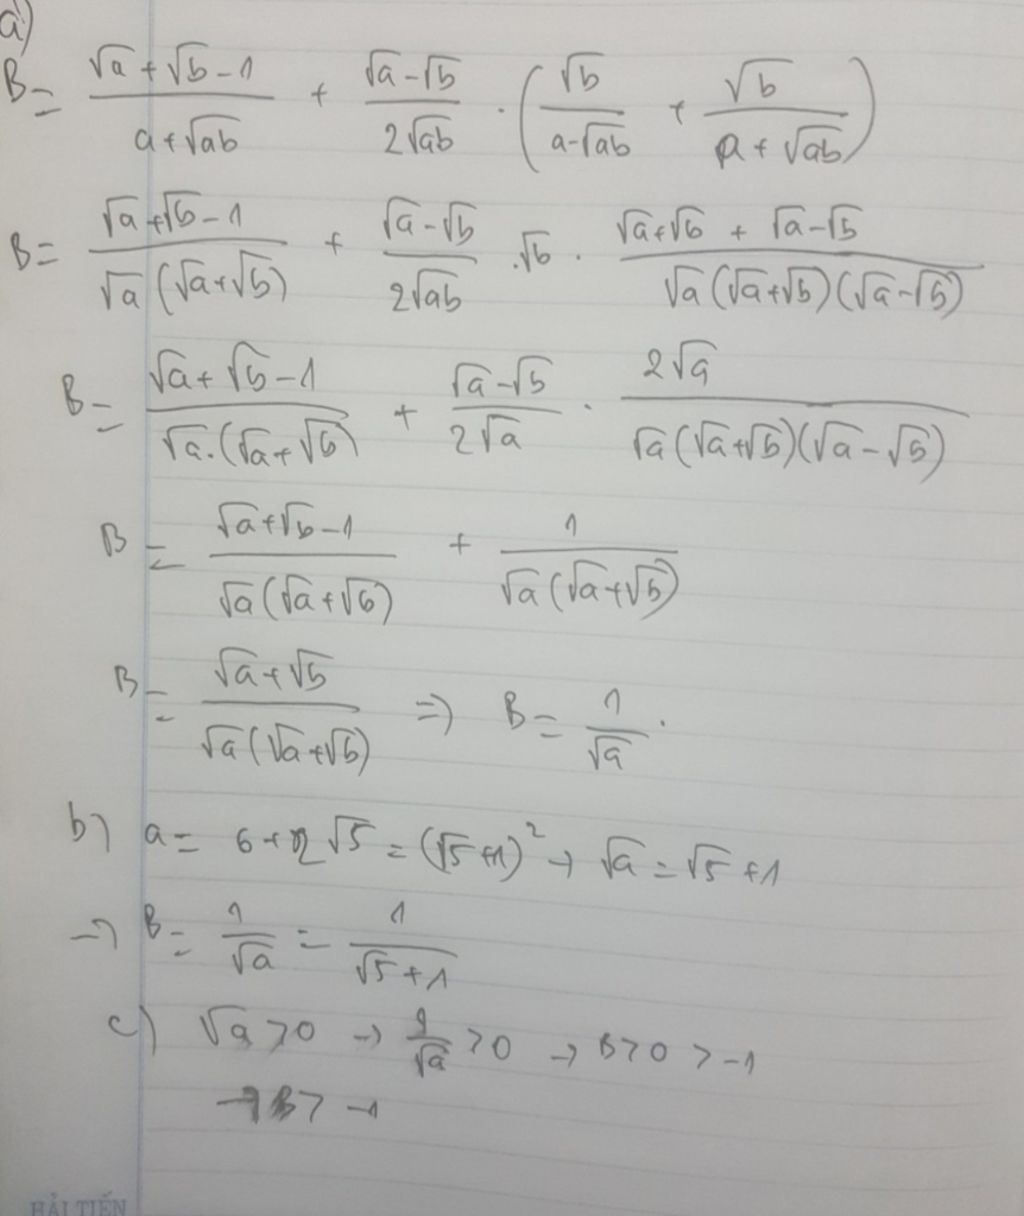 a)
B = \frac{\sqrt{a}+\sqrt{b}-1}{a+\sqrt{ab}} + \frac{\sqrt{a}-\sqrt{b}}{2\sqrt{ab}} \cdot \left( \frac{\sqrt{b}}{a-\sqrt{ab}} + \frac{\sqrt{b}}{a+\sqrt{ab}} \right)
B = \frac{\sqrt{a}+\sqrt{b}-1}{\sqrt{a}(\sqrt{a}+\sqrt{b})} + \frac{\sqrt{a}-\sqrt{b}}{2\sqrt{ab}} . \sqrt{b} . \frac{\sqrt{a}+\sqrt{b} + \sqrt{a}-\sqrt{b}}{\sqrt{a}(\sqrt{a}+\sqrt{b})(\sqrt{a}-\sqrt{b})}
B = \frac{\sqrt{a}+\sqrt{b}-1}{\sqrt{a}.(\sqrt{a}+\sqrt{b})} + \frac{\sqrt{a}-\sqrt{b}}{2\sqrt{a}} . \frac{2\sqrt{a}}{\sqrt{a}(\sqrt{a}+\sqrt{b})(\sqrt{a}-\sqrt{b})}
B = \frac{\sqrt{a}+\sqrt{b}-1}{\sqrt{a}(\sqrt{a}+\sqrt{b})} + \frac{1}{\sqrt{a}(\sqrt{a}+\sqrt{b})}
B = \frac{\sqrt{a}+\sqrt{b}}{\sqrt{a}(\sqrt{a}+\sqrt{b})} => B = \frac{1}{\sqrt{a}}.
b) a = 6+2\sqrt{5} = (\sqrt{5}+1)^2 → \sqrt{a} = \sqrt{5}+1
→ B = \frac{1}{\sqrt{a}} = \frac{1}{\sqrt{5}+1}
c) \sqrt{a} > 0 → \frac{1}{\sqrt{a}} > 0 → B > 0 > -1
→ B > -1
HẢI TIẾN